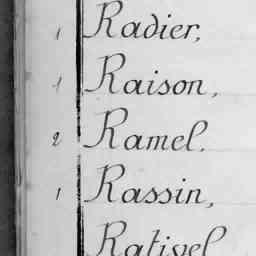 1 Radier,
1 Raison,
2 Ramel.
1 Rassin,
Rativel